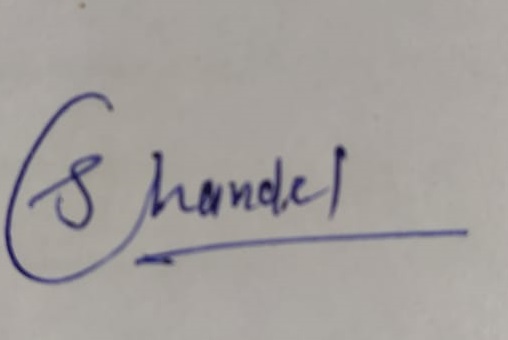 S Chandel